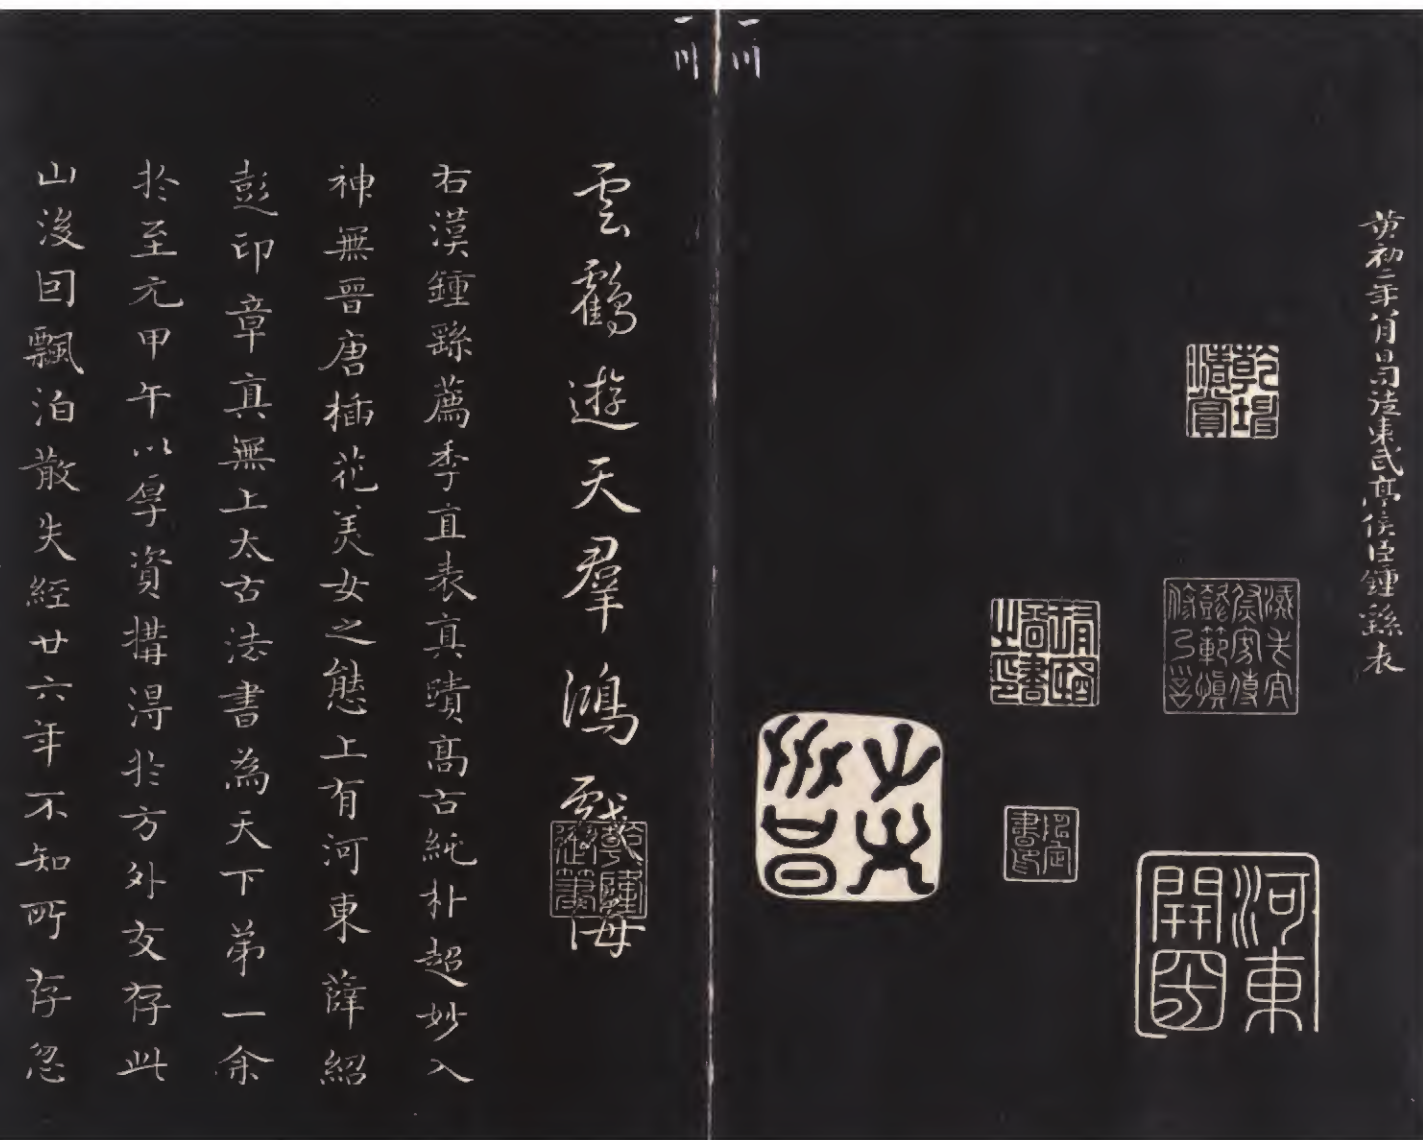 黃初二年八月日司徒東武亭侯臣鍾繇表
乾隆
清賞
河東
開國
雲鶴遊天羣鴻戲海
乾隆
宸翰
右漢鍾繇薦季直表真蹟高古純朴超妙入
神無晉唐插花美女之態上有河東薛紹
彭印章真無上太古法書為天下第一余
於至元甲午以厚資購得於方外友存此
山後因飄泊散失經廿六年不知所存忽